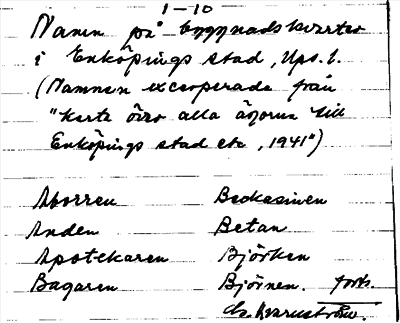 1-10
Namn på byggnadskvarter
i Enköpings stad, Ups. l.
(Namnen excerperade från
"Karta över alla ägorna till
Enköpings stad etc, 1941")
Aborren Beckasinen
Anden Betan
Apotekaren Björken
Bagaren Björnen. forts.
Kvarnström.